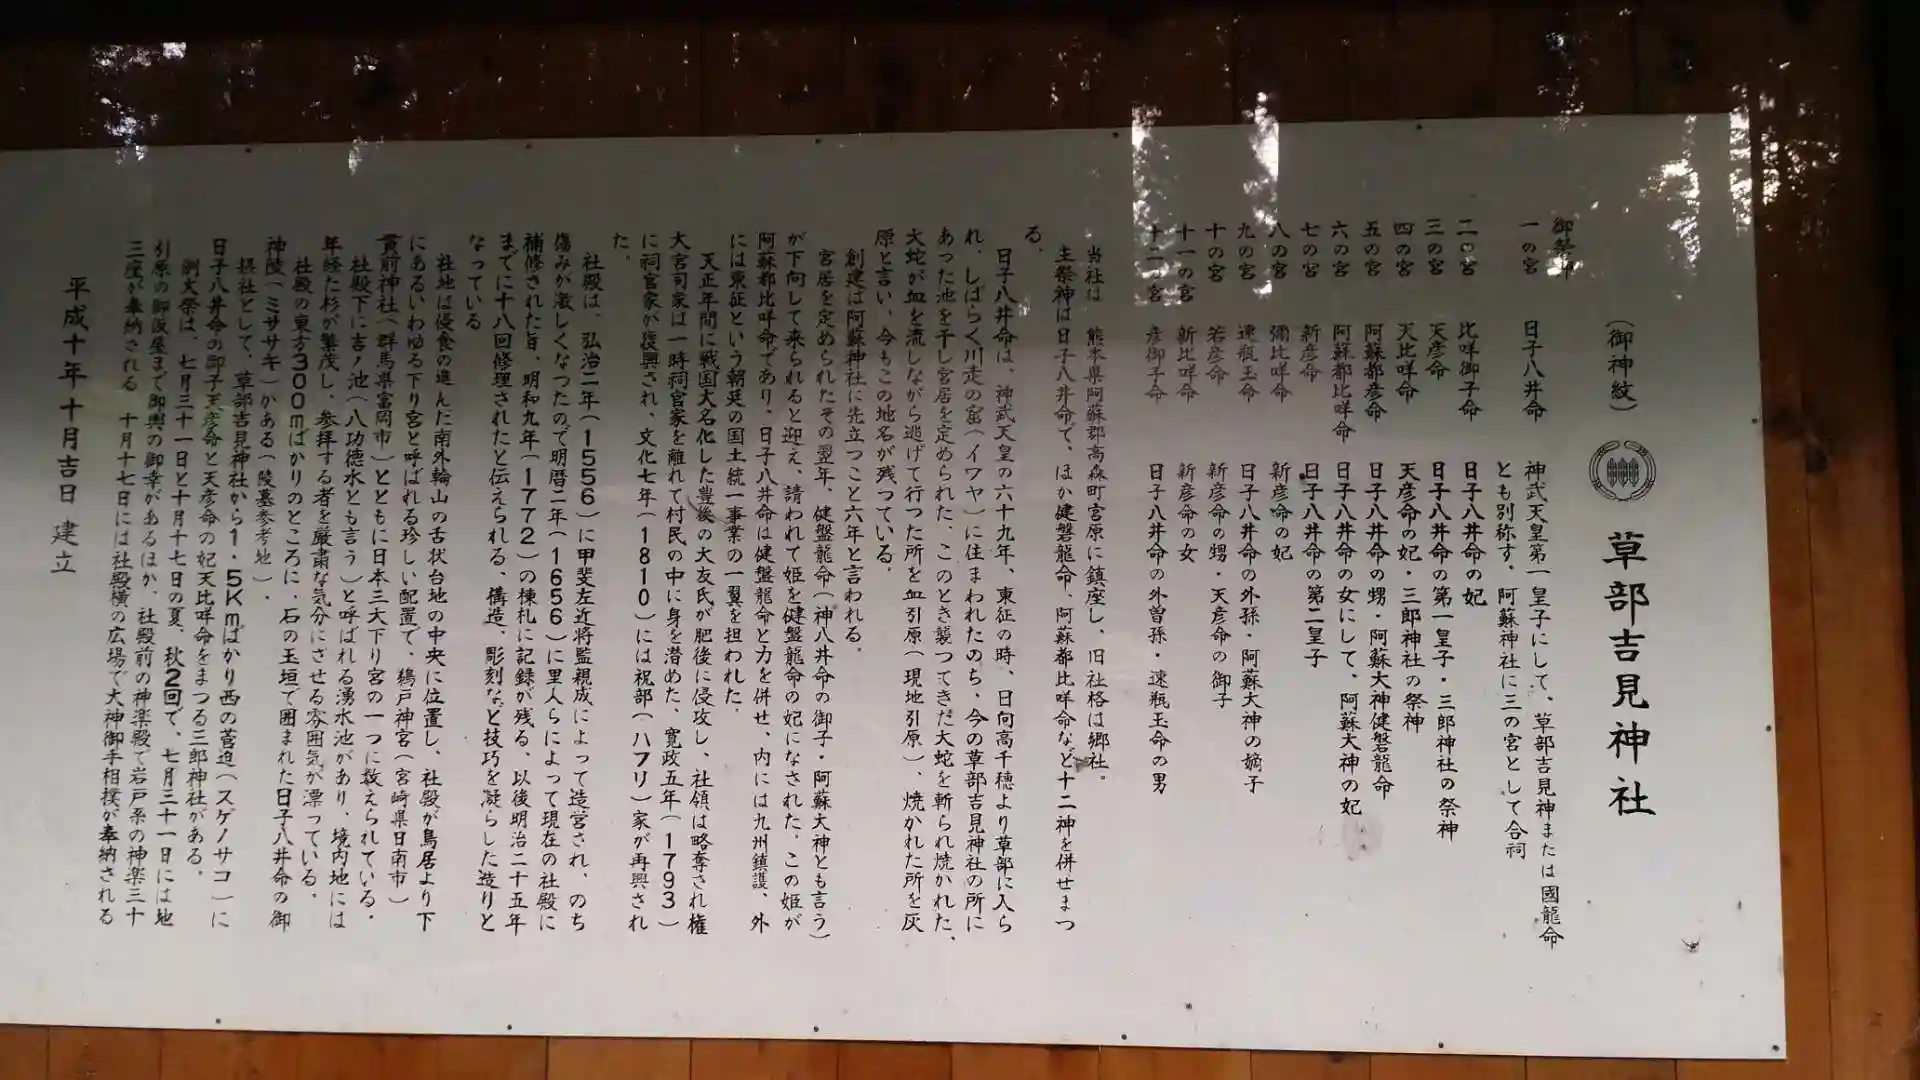 (御神紋) 草部吉見神社
御祭神
一の宮 日子八井命 神武天皇第一皇子にして、草部吉見神または國龍命
とも別称す。阿蘇神社に三の宮として合祠
二の宮 比咩御子命 日子八井命の妃
三の宮 天彦命 日子八井命の第一皇子・三郎神社の祭神
四の宮 天比咩命 天彦命の妃・三郎神社の祭神
五の宮 阿蘇都彦命 日子八井命の甥・阿蘇大神健磐龍命
六の宮 阿蘇都比咩命 日子八井命の女にして、阿蘇大神の妃
七の宮 新彦命 日子八井命の第二皇子
八の宮 彌比咩命 新彦命の妃
九の宮 速瓶玉命 日子八井命の外孫・阿蘇大神の嫡子
十の宮 若彦命 新彦命の甥・天彦命の御子
十一の宮 新比咩命 新彦命の女
十二の宮 彦御子命 日子八井命の外曽孫・速瓶玉命の男
当社は 熊本県阿蘇郡高森町宮原に鎮座し、旧社格は郷社。
主祭神は日子八井命で、ほか健磐龍命、阿蘇都比咩命など十二神を併せまつ
る。
日子八井命は、神武天皇の六十九年、東征の時、日向高千穂より草部に入ら
れ、しばらく川走の窟(イワヤ)に住まわれたのち、今の草部吉見神社の所に
あった池を干し宮居を定められた、このとき襲つてきだ大蛇を斬られ焼かれた、
大蛇が血を流しながら逃げて行つた所を血引原(現地引原)、焼かれた所を灰
原と言い、今もこの地名が残つている。
創建は阿蘇神社に先立つこと六年と言われる。
宮居を定められたその翌年、健磐龍命(神八井命の御子・阿蘇大神とも言う)
が下向して来られると迎え、請われて姫を健磐龍命の妃になされた。この姫が
阿蘇都比咩命であり、日子八井命は健磐龍命と力を併せ、内には九州鎮護、外
には東征という朝廷の国土統一事業の一翼を担われた。
天正年間に戦国大名化した豊後の大友氏が肥後に侵攻し、社領は略奪され権
大宮司家は一時祠官家を離れて村民の中に身を潜めた、寛政五年(1793)
に祠官家が復興され、文化七年(1810)には祝部(ハフリ)家が再興され
た。
社殿は、弘治二年(1556)に甲斐左近将監親成によって造営され、のち
傷みが激しくなつたので明暦二年(1656)に里人らによって現在の社殿に
補修された旨、明和九年(1772)の棟札に記録が残る、以後明治二十五年
までに十八回修理されたと伝えられる、構造、彫刻など技巧を凝らした造りと
なっている
社地は侵食の進んだ南外輪山の舌状台地の中央に位置し、社殿が鳥居より下
にあるいわゆる下り宮と呼ばれる珍しい配置で、鵜戸神宮(宮崎県日南市)
貫前神社(群馬県富岡市)とともに日本三大下り宮の一つに数えられている。
社殿下に吉ノ池(八功徳水とも言う)と呼ばれる湧水池があり、境内地には
年経た杉が繁茂し、参拝する者を厳粛な気分にさせる雰囲気が漂っている。
社殿の東方300mばかりのところに、石の玉垣で囲まれた日子八井命の御
神陵(ミササギ)がある(陵墓参考地)。
摂社として、草部吉見神社から1.5Kmばかり西の菅迫(スゲノサコ)に
日子八井命の御子天彦命と天彦命の妃天比咩命をまつる三郎神社がある。
例大祭は、七月三十一日と十月十七日の夏、秋2回で、七月三十一日には地
引原の御仮屋まで御輿の御幸があるほか、社殿前の神楽殿で岩戸系の神楽三十
三座が奉納される 十月十七日には社殿横の広場で大神御手相撲が奉納される
平成十年十月吉日 建立